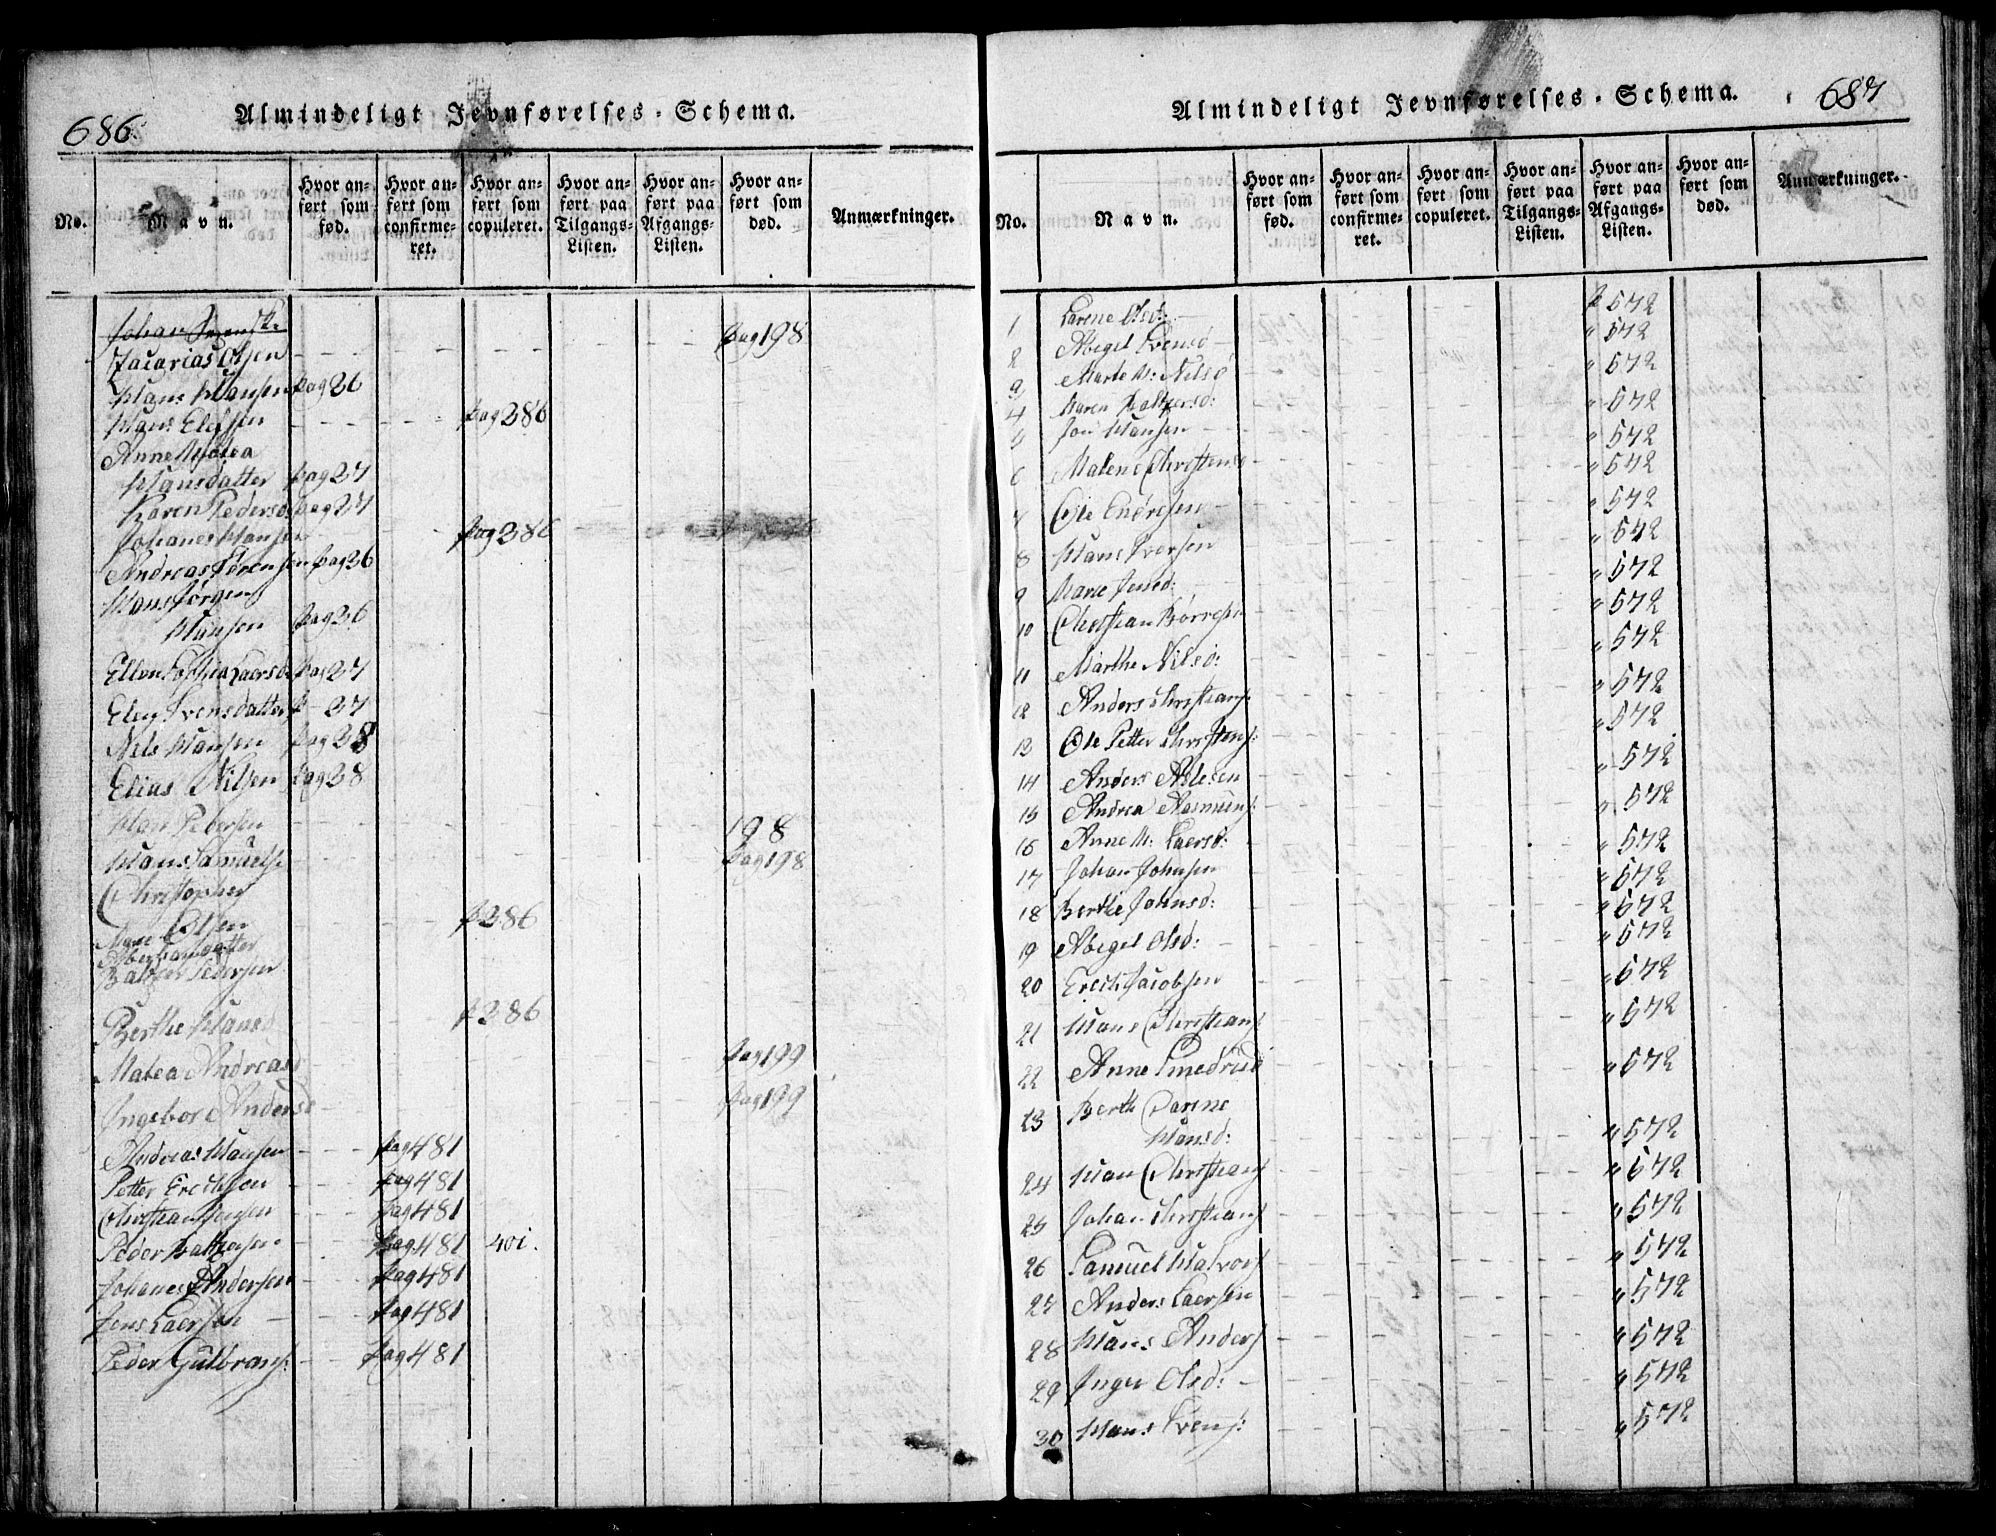 686.
Almindeligt Jevnførelses-Schema.
No.
Navn.
Hvor anført som fød.
Hvor anført som confirmeret.
Hvor anført som copuleret.
Hvor anført paa Tilgangs-Listen.
Hvor anført paa Afgangs-Listen.
Hvor anført som død.
Anmærkninger.
Johan
Zacarias Olsen pag 198
Hans Hansen pag 26
Hans Elefsen pag 386
Anne
Hansdatter pag 27
Karen Pedersd pag 27
Johanes Hansen pag 386
Andreas Sörensen pag 26
Hans Jörgen
Hansen pag 26
Ellen Sophia Laersd pag 27
Eleg Svensdatter p 27
Nils Hansen pag 28
Elias Nilsen pag 28
Hans Pedersen 198
Hans Samuels pag 198
Christopher
Olsen p 386
Abrahamdatter
Baltzer Pedersen
Berthe Hansd p 386
Matea Andreasd pag 199
Ingebor Andersd pag 199
Andreas Hansen pag 481
Petter Erichsen pag 481
Christian Jensen pag 481
Peder Baltzersen pag 481 401.
Johanes Andersen pag 481
Jens Laersen pag 481
Peder Gulbrans: pag 481
Almindeligt Jevnførelses-Schema.
687
No.
Navn.
Hvor anført som fød.
Hvor anført som confirmeret.
Hvor anført som copuleret.
Hvor anført paa Tilgangs-Listen.
Hvor anført paa Afgangs-Listen.
Hvor anført som død.
Anmærkninger.
1 Larene Olsd: p 572
2 Abegel Svensd " 572
3 Marte M: Nilsd " 572
4 Maren Baltzersd: " 572
5 Jon Hansen " 572
6 Malene Christensd " 572
7 Ole Endresen " 572
8 Hans Iversen " 572
9 Marie Jensd: " 572
10 Christian Börresen " 572
11 Marthe Nilsd: " 572
12 Anders Christians: " 572
13 Ole Petter Christens: " 572
14 Anders Aslesen " 572
15 Andrea Asmuns: " 572
16 Anne M: Laersd: " 572
17 Johan Johnsen " 572
18 Berthe Johnsd: " 572
19 Abegel Olsd: " 572
20 Erich Jacobsen " 572
21 Hans Christians " 572
22 Anne " 572
23 Berth Carene
Hansd: " 572
24 Hans Christians " 572
25 Johan Christians " 572
26 Samuel Halvors " 572
27 Anders Laersen " 572
28 Hans Anders " 572
29 Inger Olsd: " 572
30 Hans Svens: " 572